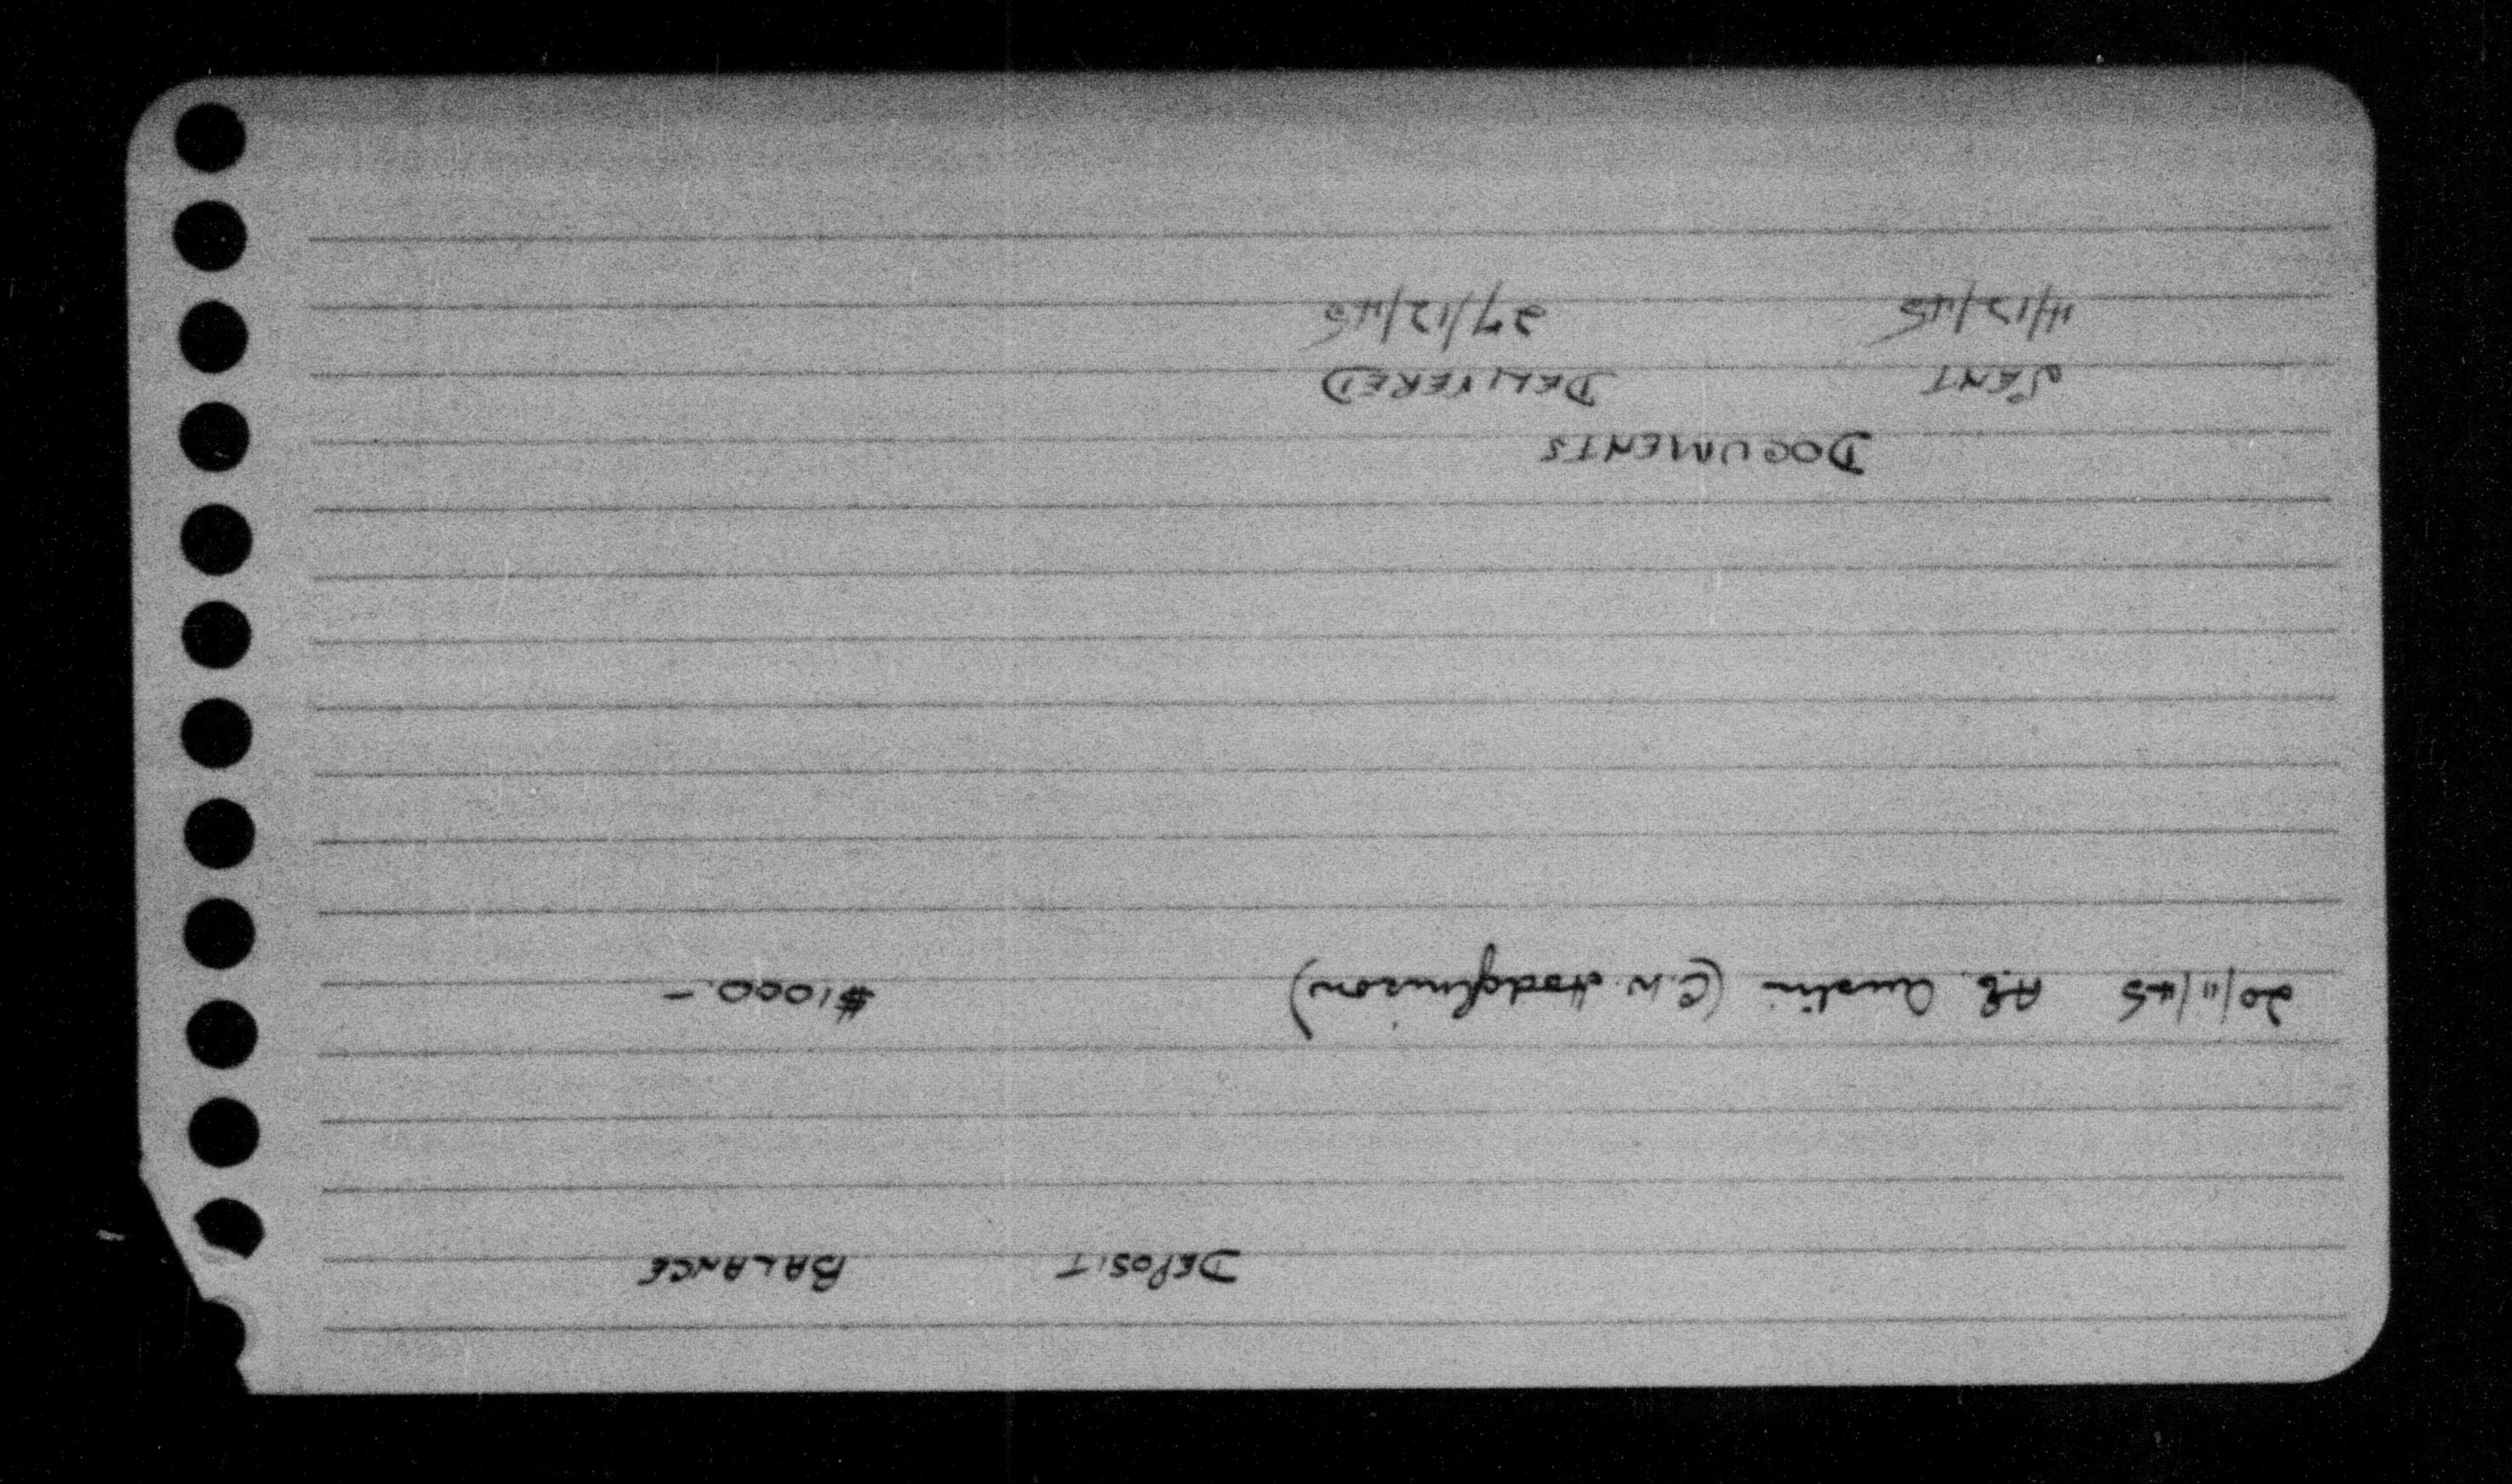 DEPOSIT BALANCE
20/11/45 A.E. Austin (C.W. Hodgkinson) $1000.—
DOCUMENTS
SENT DELIVERED
11/12/45 27/12/45